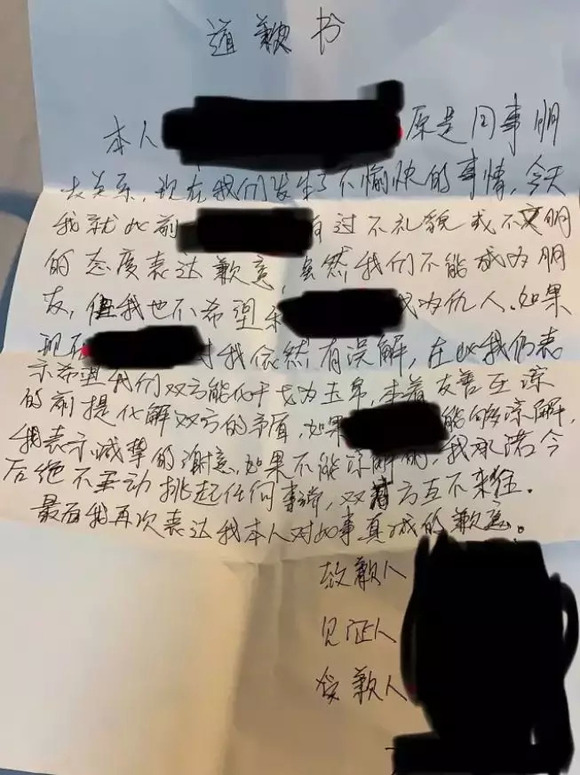 道歉书
本人 原是同事朋
友关系，现在我们发生了不愉快的事情，今天
我就此前 有过不礼貌或不文明
的态度表达歉意，虽然我们不能成为朋
友，但我也不希望和 成为仇人。如果
现在 对我依然有误解，在此我仍表
示希望我们双方能化干戈为玉帛，本着友善互谅
的前提化解双方的矛盾，如果 能够谅解，
我表示诚挚的谢意，如果不能谅解的，我承诺今
后绝不主动挑起任何事端，双方互不来往。
最后我再次表达我本人对此事真诚的歉意。
致歉人
见证人
受歉人